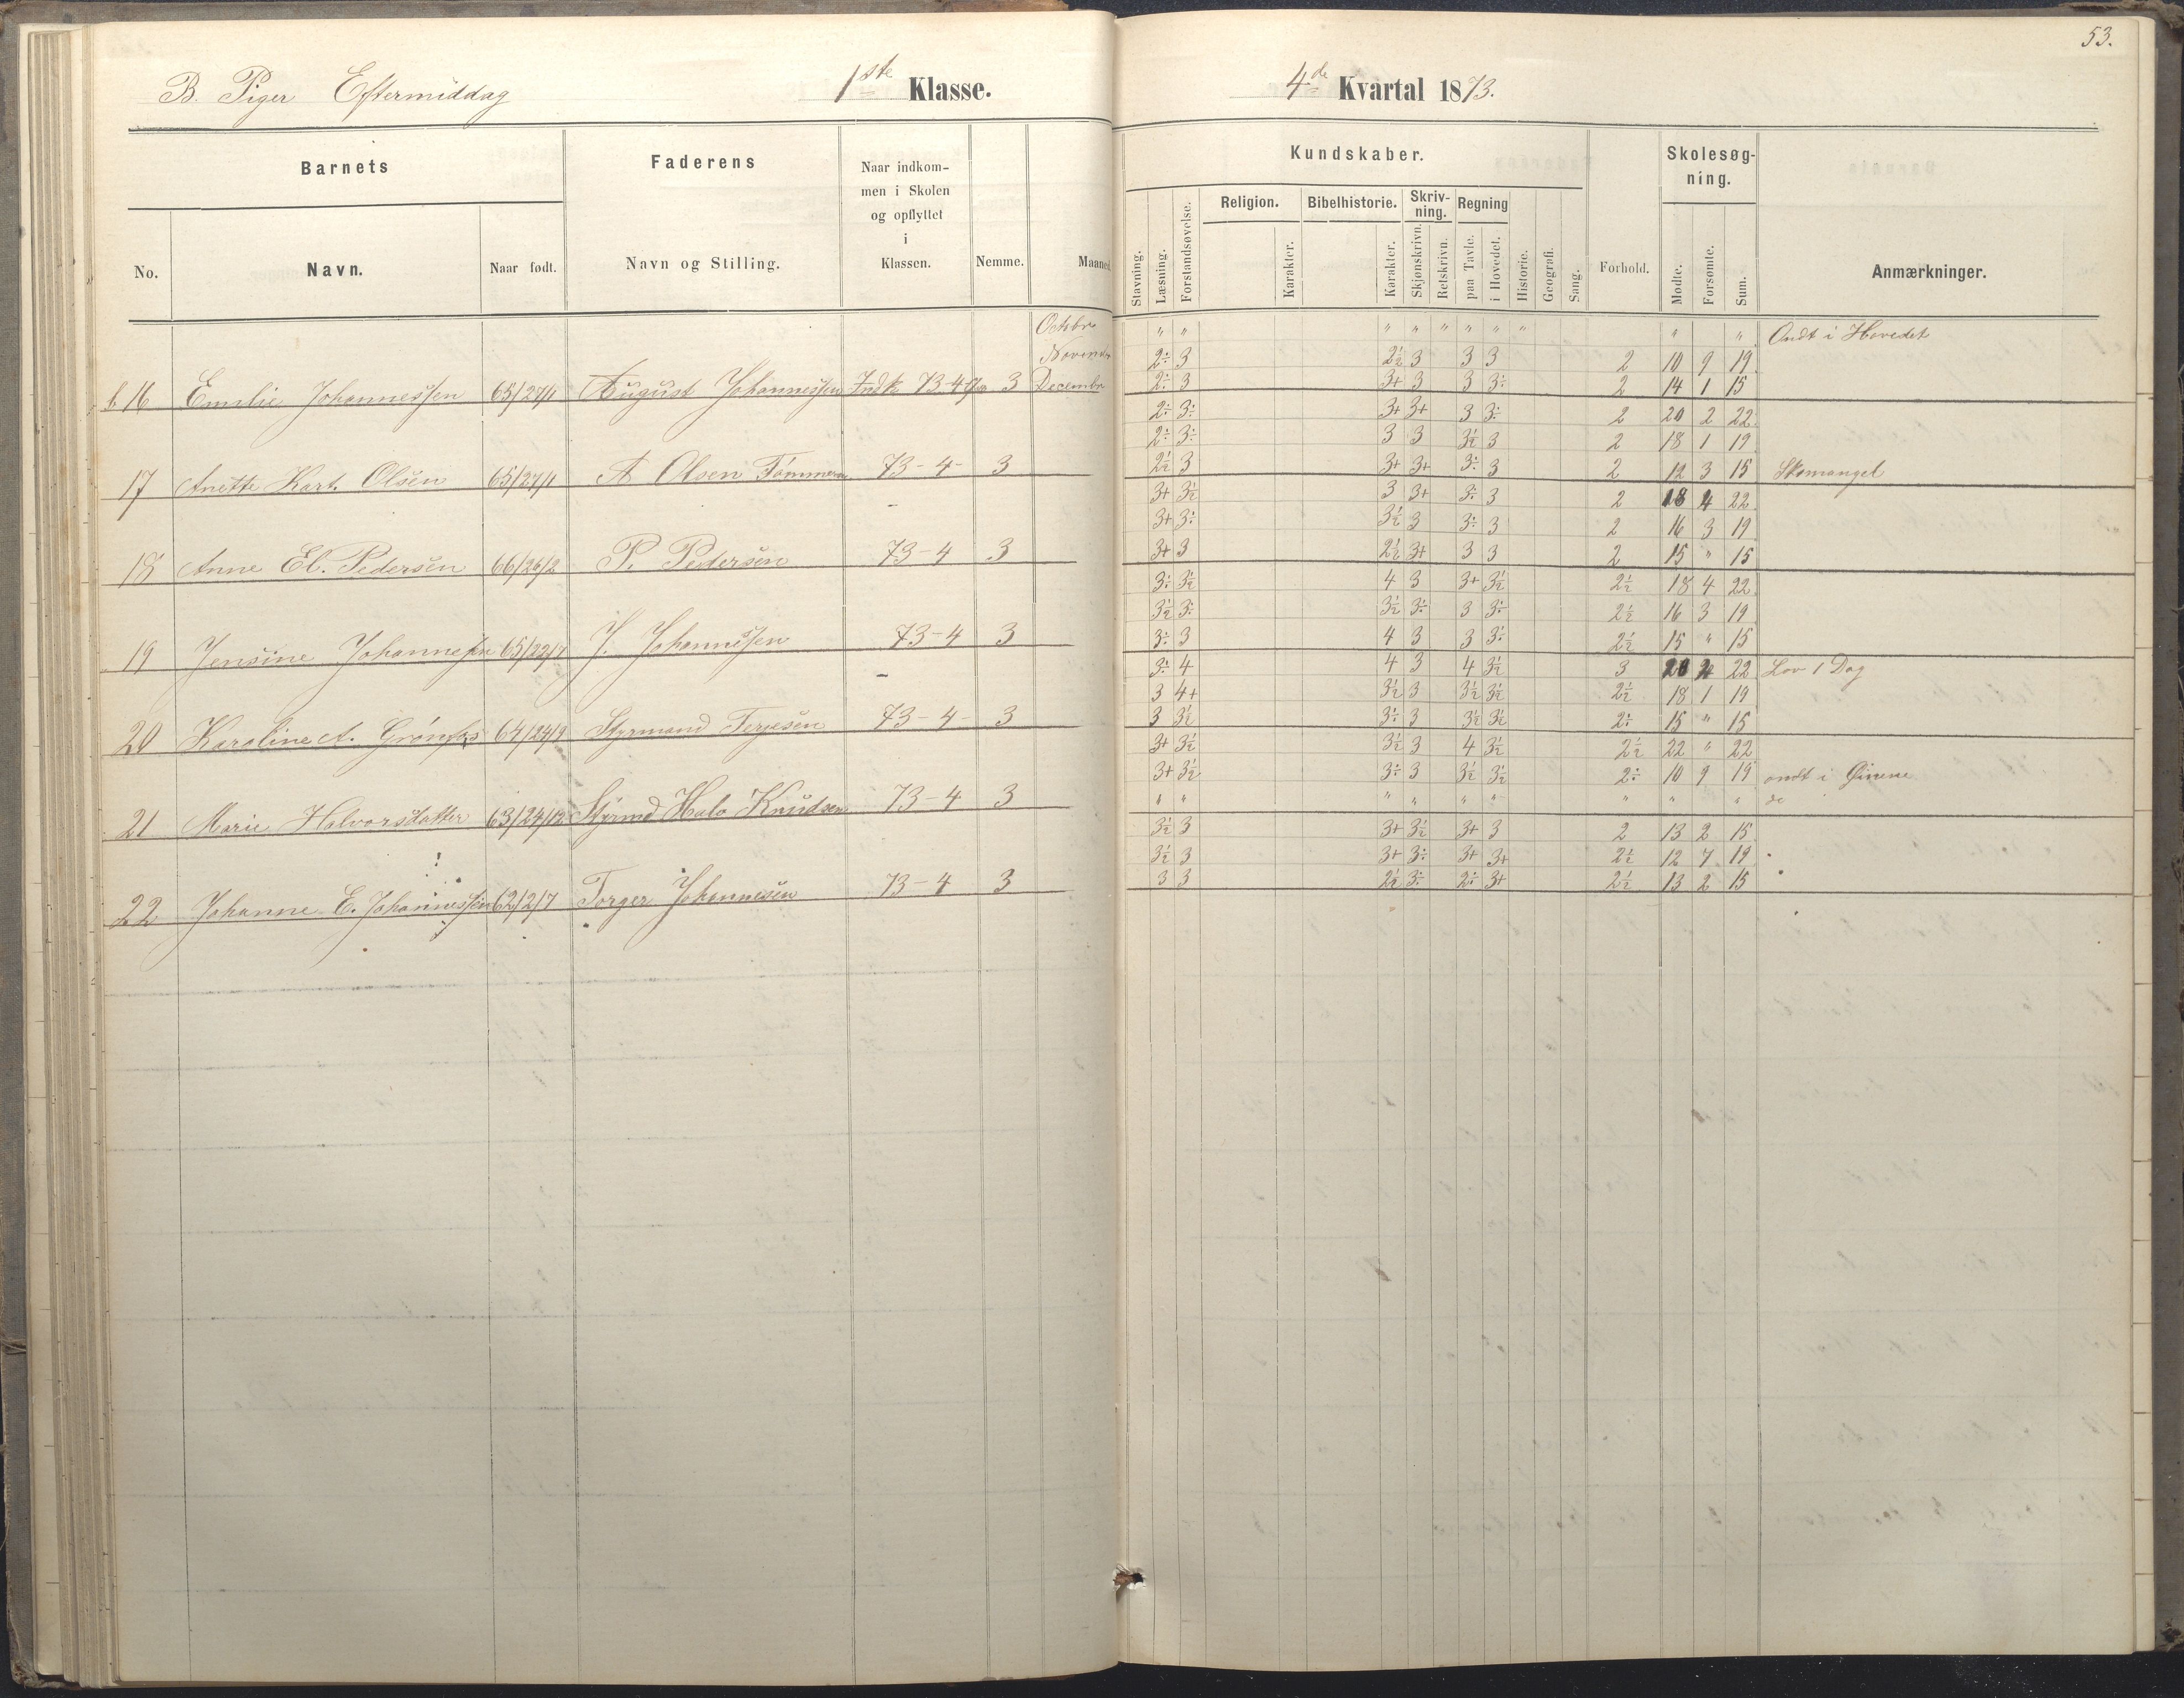 53.
B. Piger Eftermiddag 1ste Klasse. 4de Kvartal 1873.
Barnets Faderens Naar indkommen i Skolen og opflyttet i Klassen. Nemme. Maaned
No. Navn. Naar født. Navn og Stilling.
Kundskaber. Skolesøgning.
Religion. Bibelhistorie. Skrivning. Regning
Stavning. Læsning. Forstandsøvelse. Karakter. Karakter. Skjønskrivn. Retskrivn. paa Tavle. i Hovedet. Historie. Geografi. Sang. Forhold. Mødte. Forsømte. Sum. Anmærkninger.
Octbr " " " " " " " " " " Ondt i Hovedet
Novembr 2÷ 3 2½ 3 3 3 2 10 9 19
16 Emilie Johannessen 65/27/1 August Johannessen Indk 73-4 3 Decembr 2÷ 3 3+ 3 3 3÷ 2 14 1 15
2÷ 3÷ 3+ 3+ 3 3÷ 2 20 2 22
2÷ 3÷ 3 3 3½ 3 2 18 1 19
17 Anette Kart. Olsen 65/27/1 A Olsen Tømmerm 73-4- 3 2½ 3 3+ 3+ 3÷ 3 2 12 3 15 Skomangel
3+ 3½ 3 3+ 3÷ 3 2 18 4 22
3+ 3÷ 3½ 3 3÷ 3 2 16 3 19
18 Anne El. Pedersen 66/26/2 P. Pedersen 73-4 3 3+ 3 2½ 3+ 3 3 2 15 " 15
3÷ 3½ 4 3 3+ 3½ 2½ 18 4 22
3½ 3÷ 3½ 3÷ 3 3÷ 2½ 16 3 19
19 Jensine Johannesen 65/22/7 J. Johannessen 73-4 3 3÷ 3 4 3 3 3÷ 2½ 15 " 15
3÷ 4 4 3 4 3½ 3 20 2 22 Lov 1 Dag
3 4+ 3½ 3 3½ 3½ 2½ 18 1 19
20 Karoline A. Grønfos 64/24/9 Styrmand Terjesen 73-4- 3 3 3½ 3÷ 3 3½ 3½ 2÷ 15 " 15
3+ 3½ 3½ 3 4 3½ 2½ 22 " 22
3+ 3½ 3÷ 3 3½ 3½ 2÷ 10 9 19 ondt i Øinene
21 Marie Halvorsdatter 63/24/12 Styrmd Halv Knudsen 73-4 3 " " " " " " " " " do
3½ 3 3+ 3½ 3+ 3 2 13 2 15
3½ 3 3+ 3÷ 3+ 3+ 2½ 12 7 19
22 Johanne E. Johannessen 62/2/7 Torger Johannesen 73-4 3 3 3 2½ 3÷ 2÷ 3+ 2½ 13 2 15